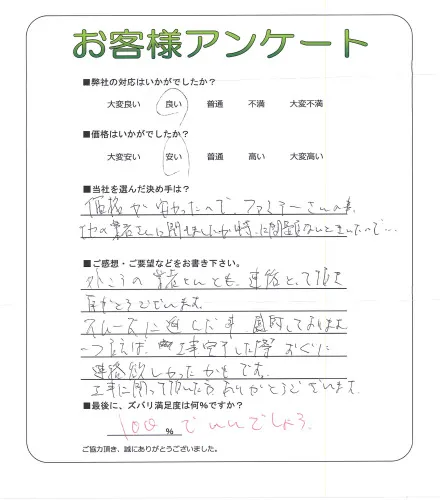 お客様アンケート
■弊社の対応はいかがでしたか？
大変良い 良い 普通 不満 大変不満
■価格はいかがでしたか？
大変安い 安い 普通 高い 大変高い
■当社を選んだ決め手は？
価格が安かったので、ファミテーさんの事、
他の業者さんに聞きましたが特に問題ないときいたので…
■ご感想・ご要望などをお書き下さい。
外こうの業者さんとも、連絡とって頂き
ありがとうございます。
スムーズに進んだ事、感謝しております
一つ言えば、工事完了した際すぐに
連絡欲しかったかもです。
工事に関って頂いた方ありがとうございます。
■最後に、ズバリ満足度は何％ですか？
100 ％ でいいでしょう。
ご協力頂き、誠にありがとうございました。